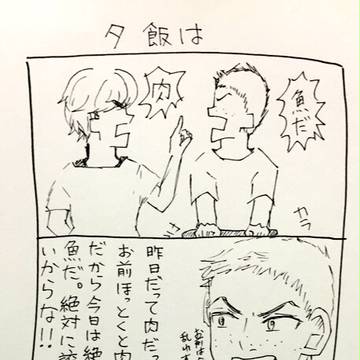 夕飯は
魚だ
肉
カラ
昨日だって肉だっ
お前ほっとくと肉
だから今日は絶
魚だ。絶対に
いからな!!
お前は